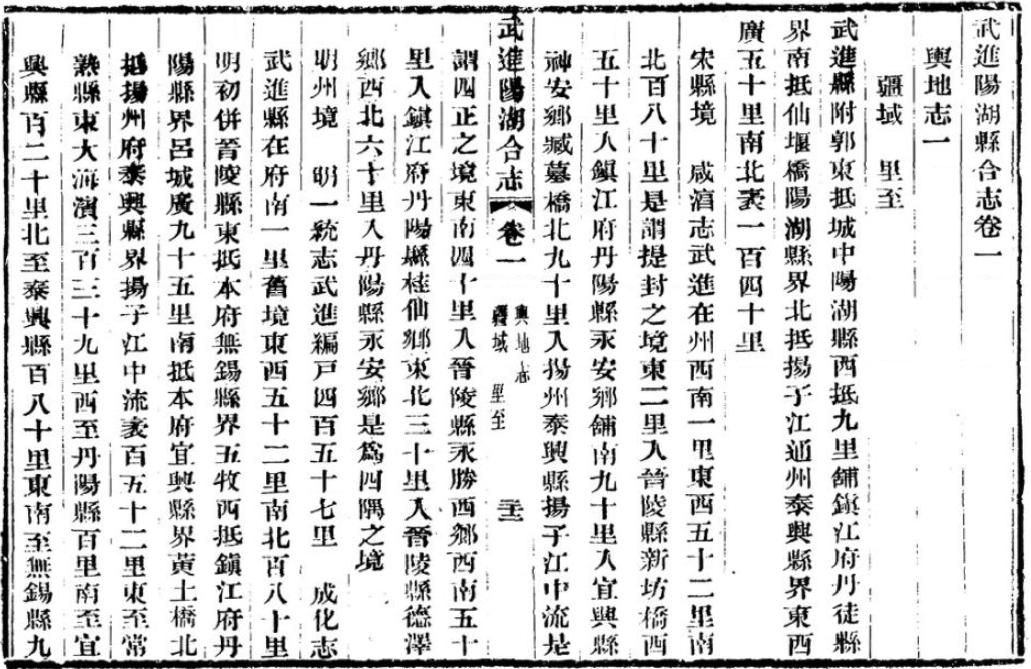 武進陽湖縣合志卷一
輿地志一
疆域　里至
武進縣附郭東抵城中陽湖縣西抵九里舖鎭江府丹徒縣
界南抵仙堰橋陽湖縣界北抵揚子江通州泰興縣界東西
廣五十里南北袤一百四十里
宋縣境　咸湻志武進在州西南一里東西五十二里南
北百八十里是謂提封之境東二里入晉陵縣新坊橋西
五十里入鎭江府丹陽縣永安鄉舖南九十里入宜興縣
神安鄉臧墓橋北九十里入揚州泰興縣揚子江中流是
武進陽湖合志　卷一　輿地志　疆域　里至
謂四正之境東南四十里入晉陵縣永勝西鄉西南五十
里入鎭江府丹陽縣桂仙鄉東北三十里入晉陵縣德澤
鄉西北六十里入丹陽縣永安鄉是爲四隅之境
明州境　明一統志武進編戸四百五十七里　成化志
武進縣在府南一里舊境東西五十二里南北百八十里
明初併晉陵縣東抵本府無錫縣界五牧西抵鎭江府丹
陽縣界呂城廣九十五里南抵本府宜興縣界黃土橋北
抵揚州府泰興縣界揚子江中流袤百五十二里東至常
熟縣東大海濱三百三十九里西至丹陽縣百里南至宜
興縣百二十里北至泰興縣百八十里東南至無錫縣九